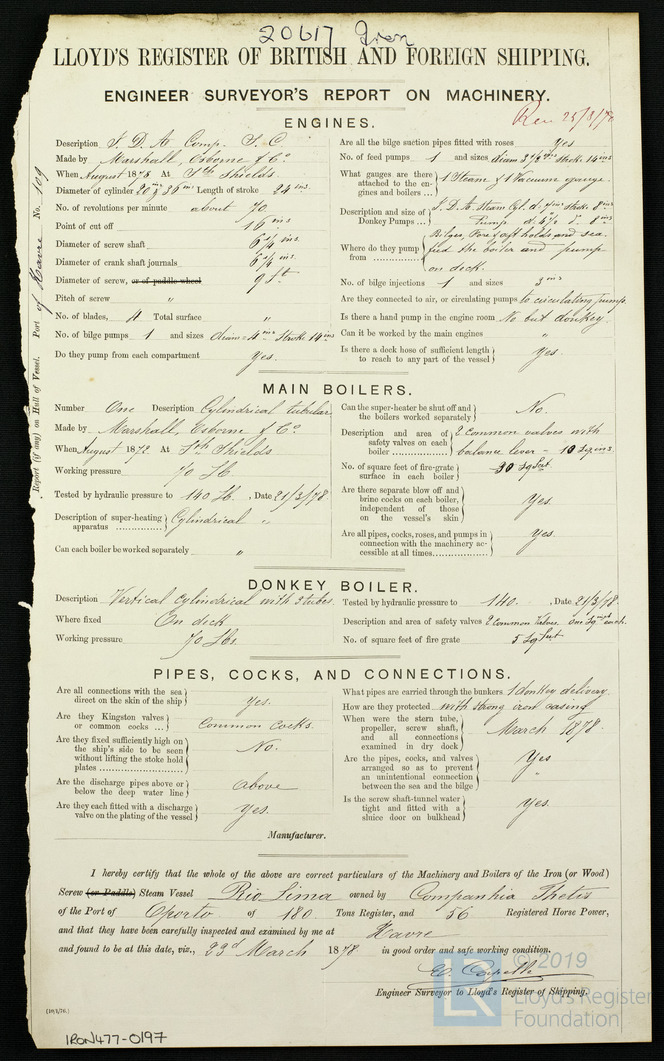 20617 Iron
LLOYD'S REGISTER OF BRITISH AND FOREIGN SHIPPING.
ENGINEER SURVEYOR'S REPORT ON MACHINERY.
Rec 25/3/78
ENGINES.
Report (if any) on Hull of Vessel. Port of Havre No. 109
Description I. D. A. Comp. S. C
Made by Marshall, Osborne & Co.
When August 1878 At Sth Shields
Diameter of cylinder 20 & 36 ins Length of stroke 24 ins.
No. of revolutions per minute about 70
Point of cut off 16 ins
Diameter of screw shaft 6 3/4 ins.
Diameter of crank shaft journals 6 3/4 ins.
Diameter of screw, or of paddle wheel 9 ft.
Pitch of screw "
No. of blades, 4 Total surface "
No. of bilge pumps 1 and sizes diam = 4 ins Stroke 14 ins
Do they pump from each compartment Yes.
Are all the bilge suction pipes fitted with roses Yes.
No. of feed pumps 1 and sizes diam 3 1/2 ins Stroke 14 ins
What gauges are there attached to the engines and boilers ... 1 Steam & 1 Vacuum gauge.
Description and size of Donkey Pumps ... S. D. A. Steam Cyl. d. 7 ins Stroke 8 ins
Pump d. 5 1/2 d. 8 ins
Where do they pump from Bilges, Fore & aft holds and sea.
feed the boiler and pump
on deck.
No. of bilge injections 1 and sizes 3 ins
Are they connected to air, or circulating pumps to circulating pump.
Is there a hand pump in the engine room No but donkey.
Can it be worked by the main engines "
Is there a deck hose of sufficient length to reach to any part of the vessel Yes.
MAIN BOILERS.
Number One Description Cylindrical tubular
Made by Marshall, Osborne & Co.
When August 1872 At Sth Shields
Working pressure 70 lb.
Tested by hydraulic pressure to 140 lb., Date 21/3/78.
Description of super-heating apparatus Cylindrical "
Can each boiler be worked separately "
Can the super-heater be shut off and the boilers worked separately No.
Description and area of safety valves on each boiler 2 Common valves with
balance lever - 10 Sq ins
No. of square feet of fire-grate surface in each boiler 30 Sq feet
Are there separate blow off and brine cocks on each boiler, independent of those on the vessel's skin Yes.
Are all pipes, cocks, roses, and pumps in connection with the machinery accessible at all times Yes.
DONKEY BOILER.
Description Vertical Cylindrical with 3 tubes.
Where fixed On deck
Working pressure 70 lbs.
Tested by hydraulic pressure to 140., Date 21/3/78.
Description and area of safety valves 2 Common Valves. One Sq inch each.
No. of square feet of fire grate 5 Sq feet
PIPES, COCKS, AND CONNECTIONS.
Are all connections with the sea direct on the skin of the ship Yes.
Are they Kingston valves or common cocks ... Common cocks.
Are they fixed sufficiently high on the ship's side to be seen without lifting the stoke hold plates No.
Are the discharge pipes above or below the deep water line above
Are they each fitted with a discharge valve on the plating of the vessel Yes.
What pipes are carried through the bunkers 1 donkey delivery.
How are they protected with strong iron casing
When were the stern tube, propeller, screw shaft, and all connections examined in dry dock March 1878.
Are the pipes, cocks, and valves arranged so as to prevent an unintentional connection between the sea and the bilge Yes
"
Is the screw shaft-tunnel water tight and fitted with a sluice door on bulkhead Yes.
Manufacturer.
I hereby certify that the whole of the above are correct particulars of the Machinery and Boilers of the Iron (or Wood)
Screw (or Paddle) Steam Vessel Rio Lima owned by Companhia Thetis
of the Port of Oporto of 180 Tons Register, and 56 Registered Horse Power,
and that they have been carefully inspected and examined by me at Havre
and found to be at this date, viz., 23d March 1878 in good order and safe working condition.
Engineer Surveyor to Lloyd's Register of Shipping.
IRON477-0197
LR
© 2019
Lloyd's Register
Foundation